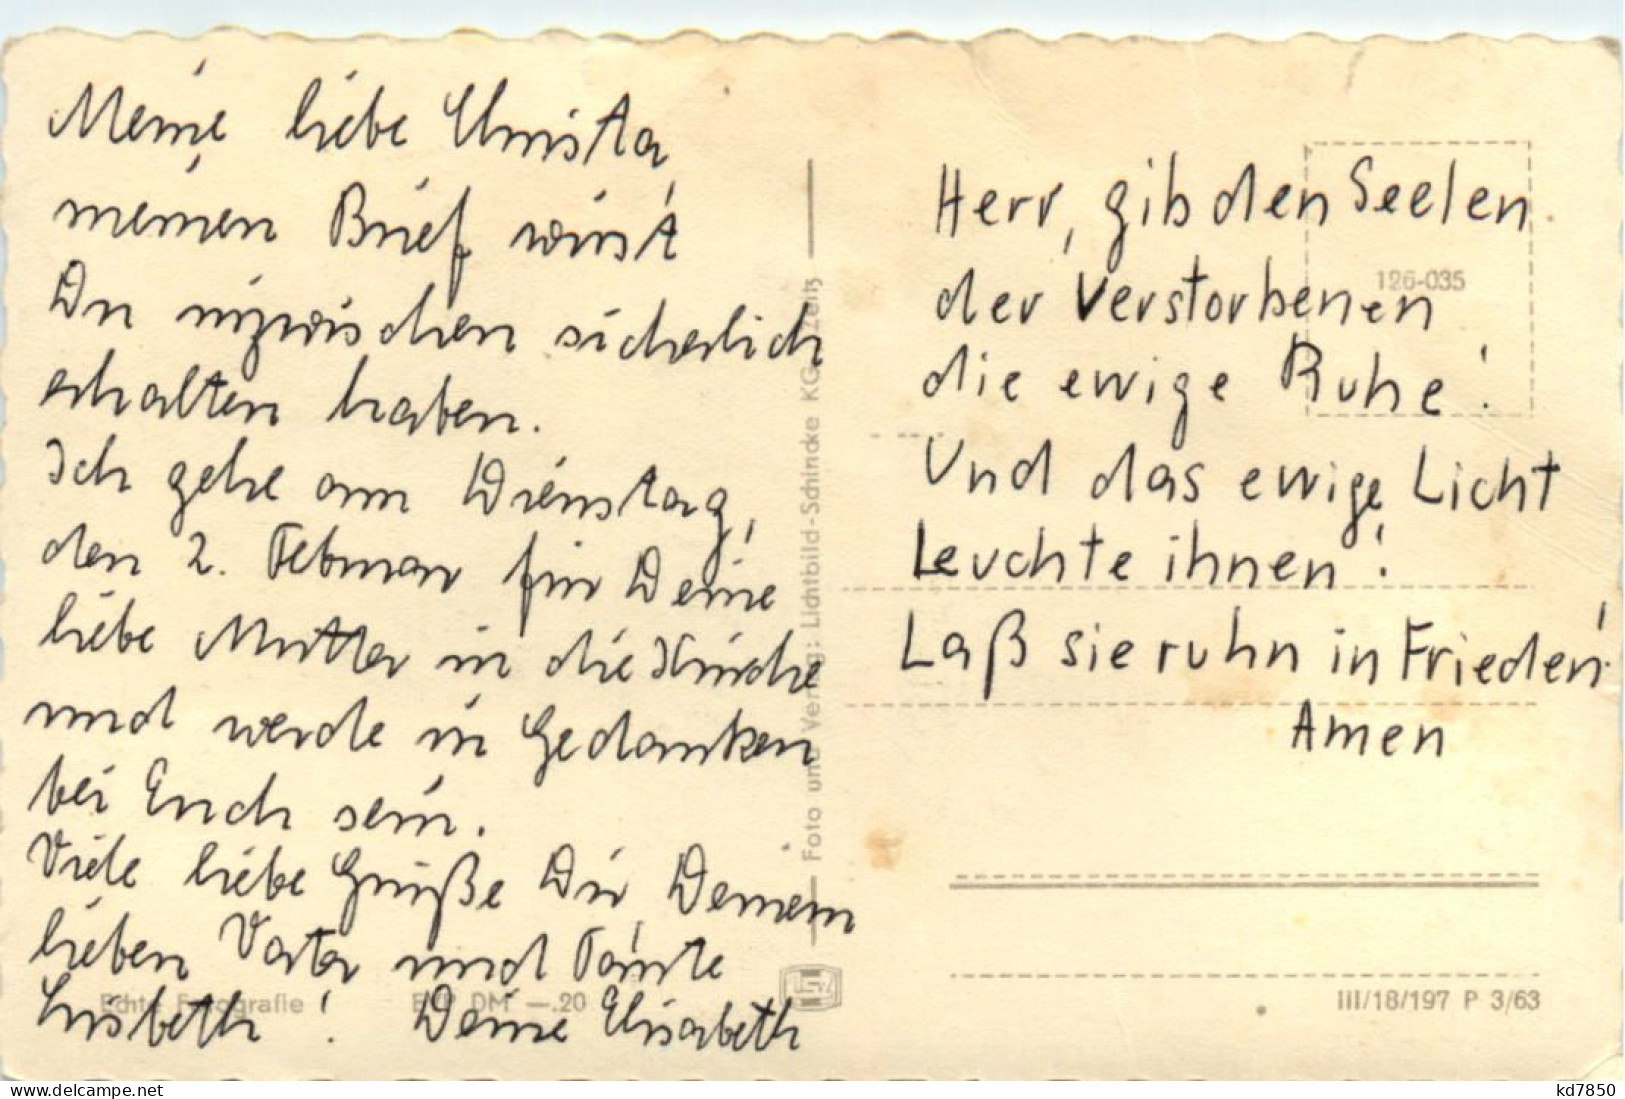 Meine liebe Christa,
meinen Brief wirst
Du inzwischen sicherlich
erhalten haben.
Ich gehe am Dienstag,
den 2. Februar für Deine
liebe Mutter in die Kirche
und werde in Gedanken
bei Euch sein.
Viele liebe Grüße Dir, Deinem
lieben Vater und Tante
Lisbeth! Deine Elisabeth
Echte Fotografie EVP DM —.20
Foto und Verlag: Lichtbild-Schincke KG, Zeitz
Herr, gib den Seelen
der Verstorbenen
die ewige Ruhe!
Und das ewige Licht
Leuchte ihnen!
Laß sie ruhn in Frieden!
Amen
126-035
III/18/197 P 3/63
www.delcampe.net
kd7850